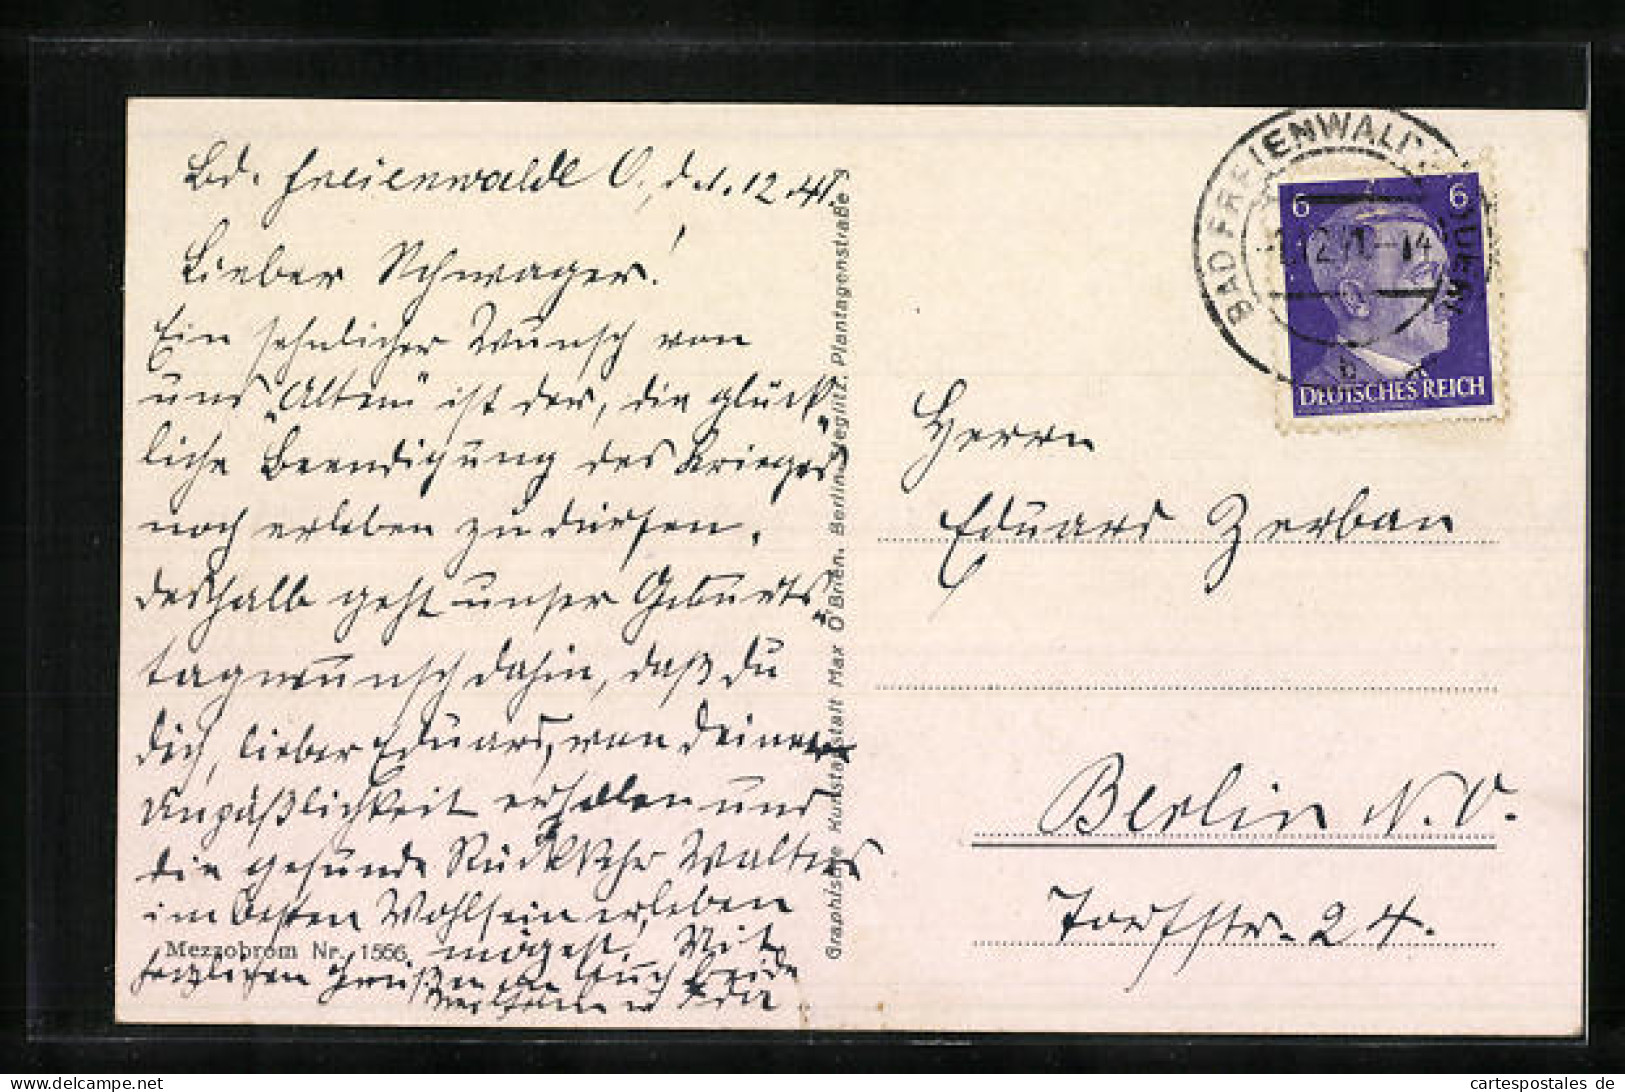 Bd. Freienwalde O., d. 1.12.41.
Lieber Schwager!
Ein sehnlicher Wunsch von
uns „Alten“ ist der, die glück-
liche Beendigung des Krieges
noch erleben zu dürfen,
deshalb geht unser Geburts-
tagwunsch dahin, daß du
dich, lieber Eduard, von deiner
Unpäßlichkeit erholen und
die gesunde Rückkehr Walters
im besten Wohlsein erleben
mögest. Mit
herzlichen Grüßen an Euch beide
Mezzobrom Nr. 1556.
Graphische Kunstanstalt Max O'Brien, Berlin-Steglitz, Plantagenstraße
BAD FREIENWALD
1.12.41-14
b
6 6
DEUTSCHES REICH
Herrn
Eduard Zerban
Berlin N.O.
Torfstr. 24.
cartespostales de